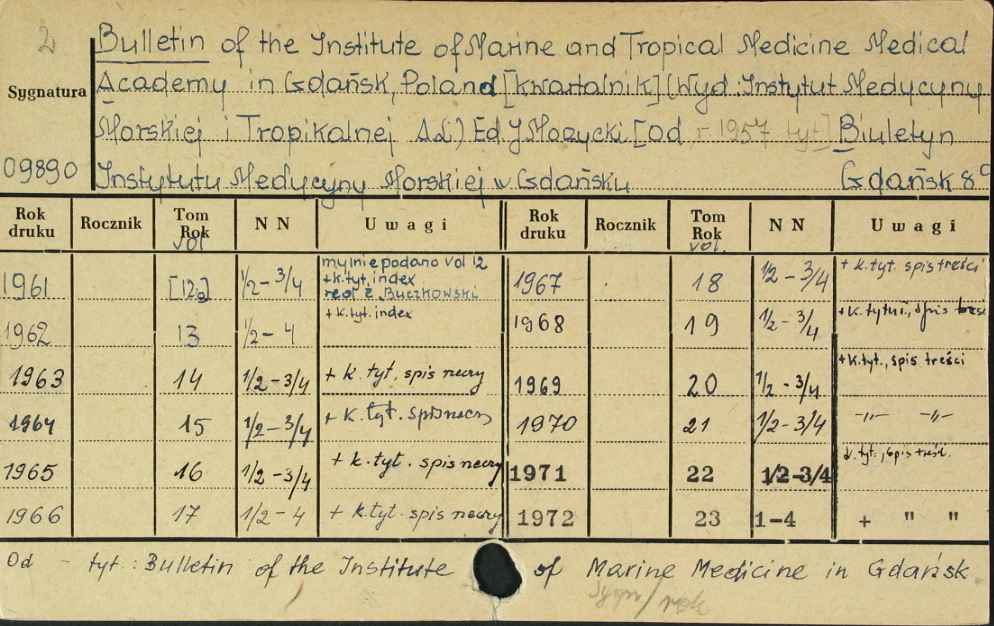 2
Bulletin of the Institute of Marine and Tropical Medicine Medical
Academy in Gdańsk, Poland [kwartalnik] (Wyd: Instytut Medycyny
Morskiej i Tropikalnej Ed. J Morzycki [od r. 1957 tyt] Biuletyn
Instytutu Medycyny Morskiej w Gdańsku Gdańsk 8°
Sygnatura
09890
Rok druku Rocznik Tom Rok vol N N Uwagi Rok druku Rocznik Tom Rok vol. N N Uwagi
1961 [12a] 1/2 - 3/4 mylnie podano vol 12 + k. tyt, index red. Z. Buczkowski 1967 18 1/2 - 3/4 + k. tyt. spis treści
1962 13 1/2 - 4 + k. tyt. index 1968 19 1/2 - 3/4 + k. spis treści
1963 14 1/2 - 3/4 + k. tyt, spis rzeczy 1969 20 1/2 - 3/4 + k. tyt., spis treści
1964 15 1/2 - 3/4 + k. tyt. spis rzeczy 1970 21 1/2 - 3/4 -"- -"-
1965 16 1/2 - 3/4 + k. tyt. spis rzeczy 1971 22 1/2-3/4 k. tyt., spis treści.
1966 17 1/2 - 4 + k. tyt. spis rzeczy 1972 23 1-4 + " "
Od - tyt: Bulletin of the Institute of Marine Medicine in Gdańsk.
Sygn/rok